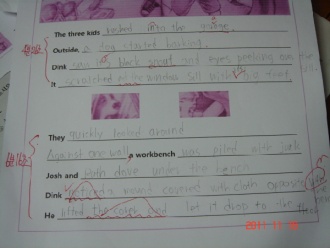 The three kids rushed into the garage.
Outside, a dog started barking.
Dink saw black snout and eyes peeking over the
It scratched at the window sill with
They quickly looked around
Against one wall, a workbench was piled with junk
Josh and Ruth dove under the bench
Dink noticed a mound covered with cloth opposite
He lifted the cover and let it drop to the
2011 11